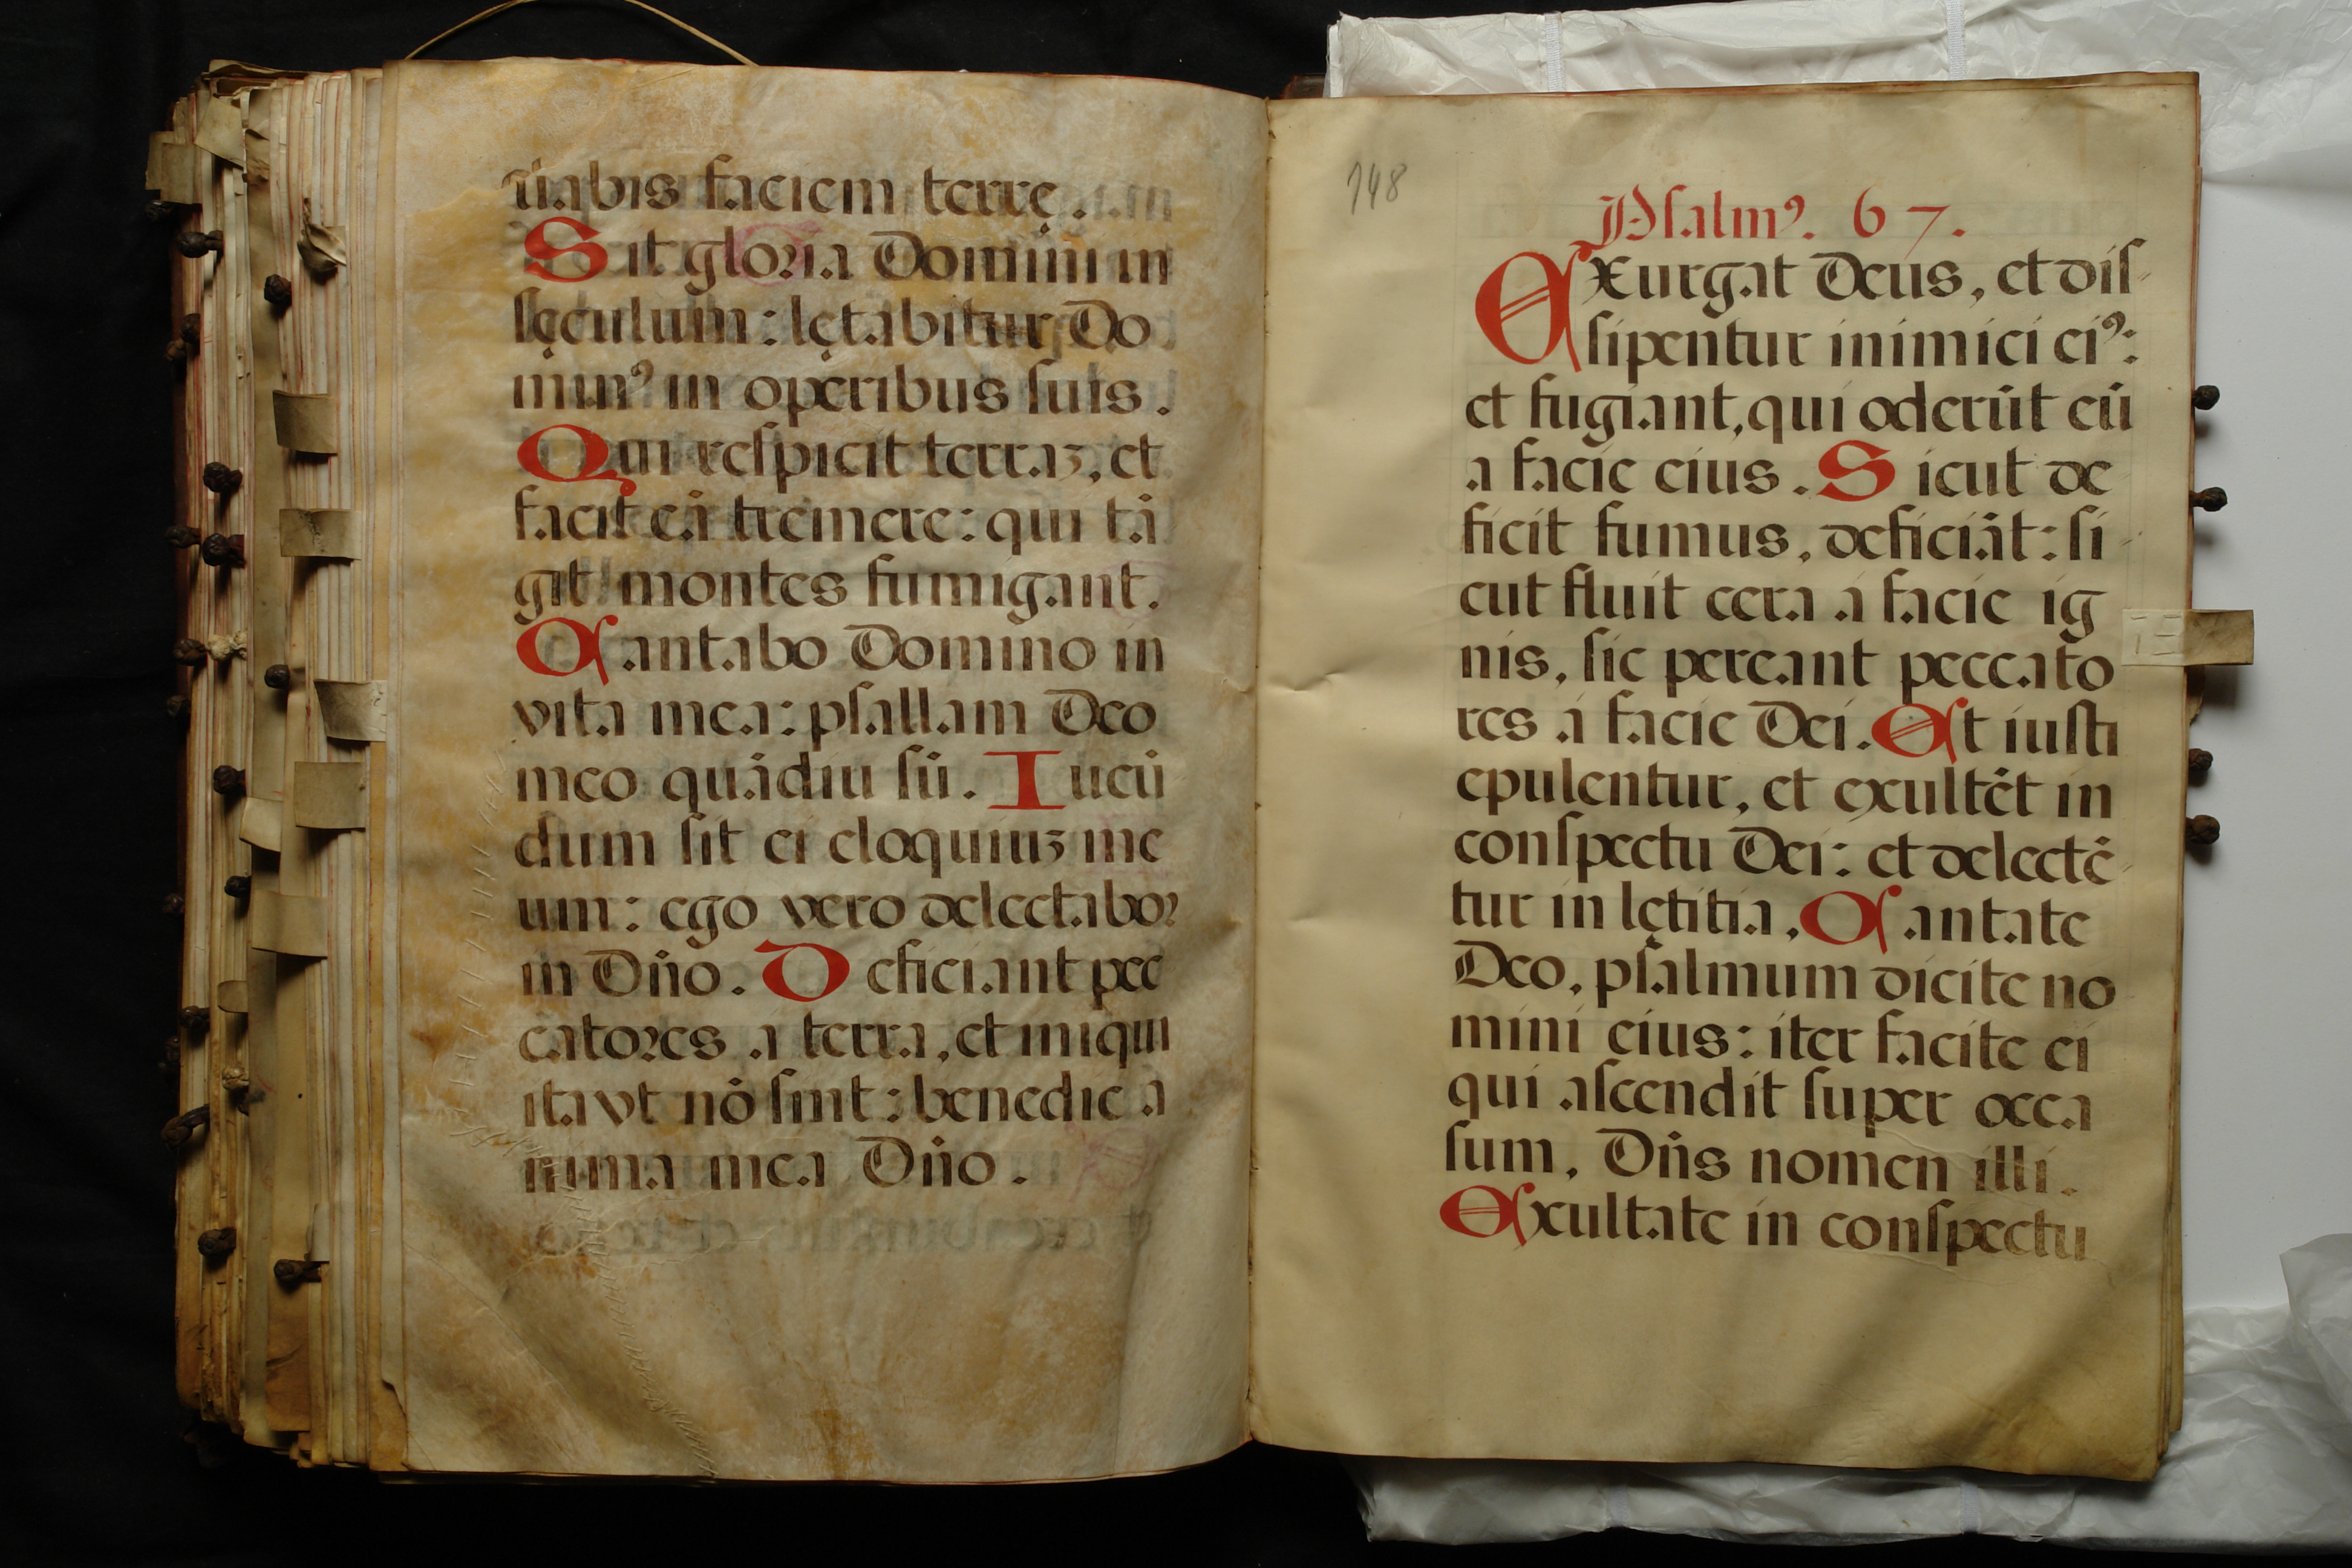 uabis faciem terrę.
Sit gloria Domini in
sęculum: lętabitur Do
minꝰ in operibus suis.
Qui respicit terraʒ, et
facit eā tremere: qui tā
git montes fumigant.
Cantabo Domino in
vita mea: psallam Deo
meo quādiu sū. Iucū
dum sit ei eloquiuʒ me
um: ego vero delectabor
in Dño. Deficiant pec
catores a terra, et iniqui
ita vt nō sint: benedic a
nima mea Dño.
148
Psalmꝰ. 67.
Exurgat Deus, et dis-
sipentur inimici eiꝰ:
et fugiant, qui oderūt eū
a facie eius. Sicut de
ficit fumus, deficiāt: si-
cut fluit cera á facie ig
nis, sic pereant peccato
res á facie Dei. Et iusti
epulentur, et exultēt in
conspectu Dei: et delectē-
tur in lętitia. Cantate
Deo, psalmum dicite no
mini eius: iter facite ei
qui ascendit super occa
sum, Dñs nomen illi.
Exultate in conspectu